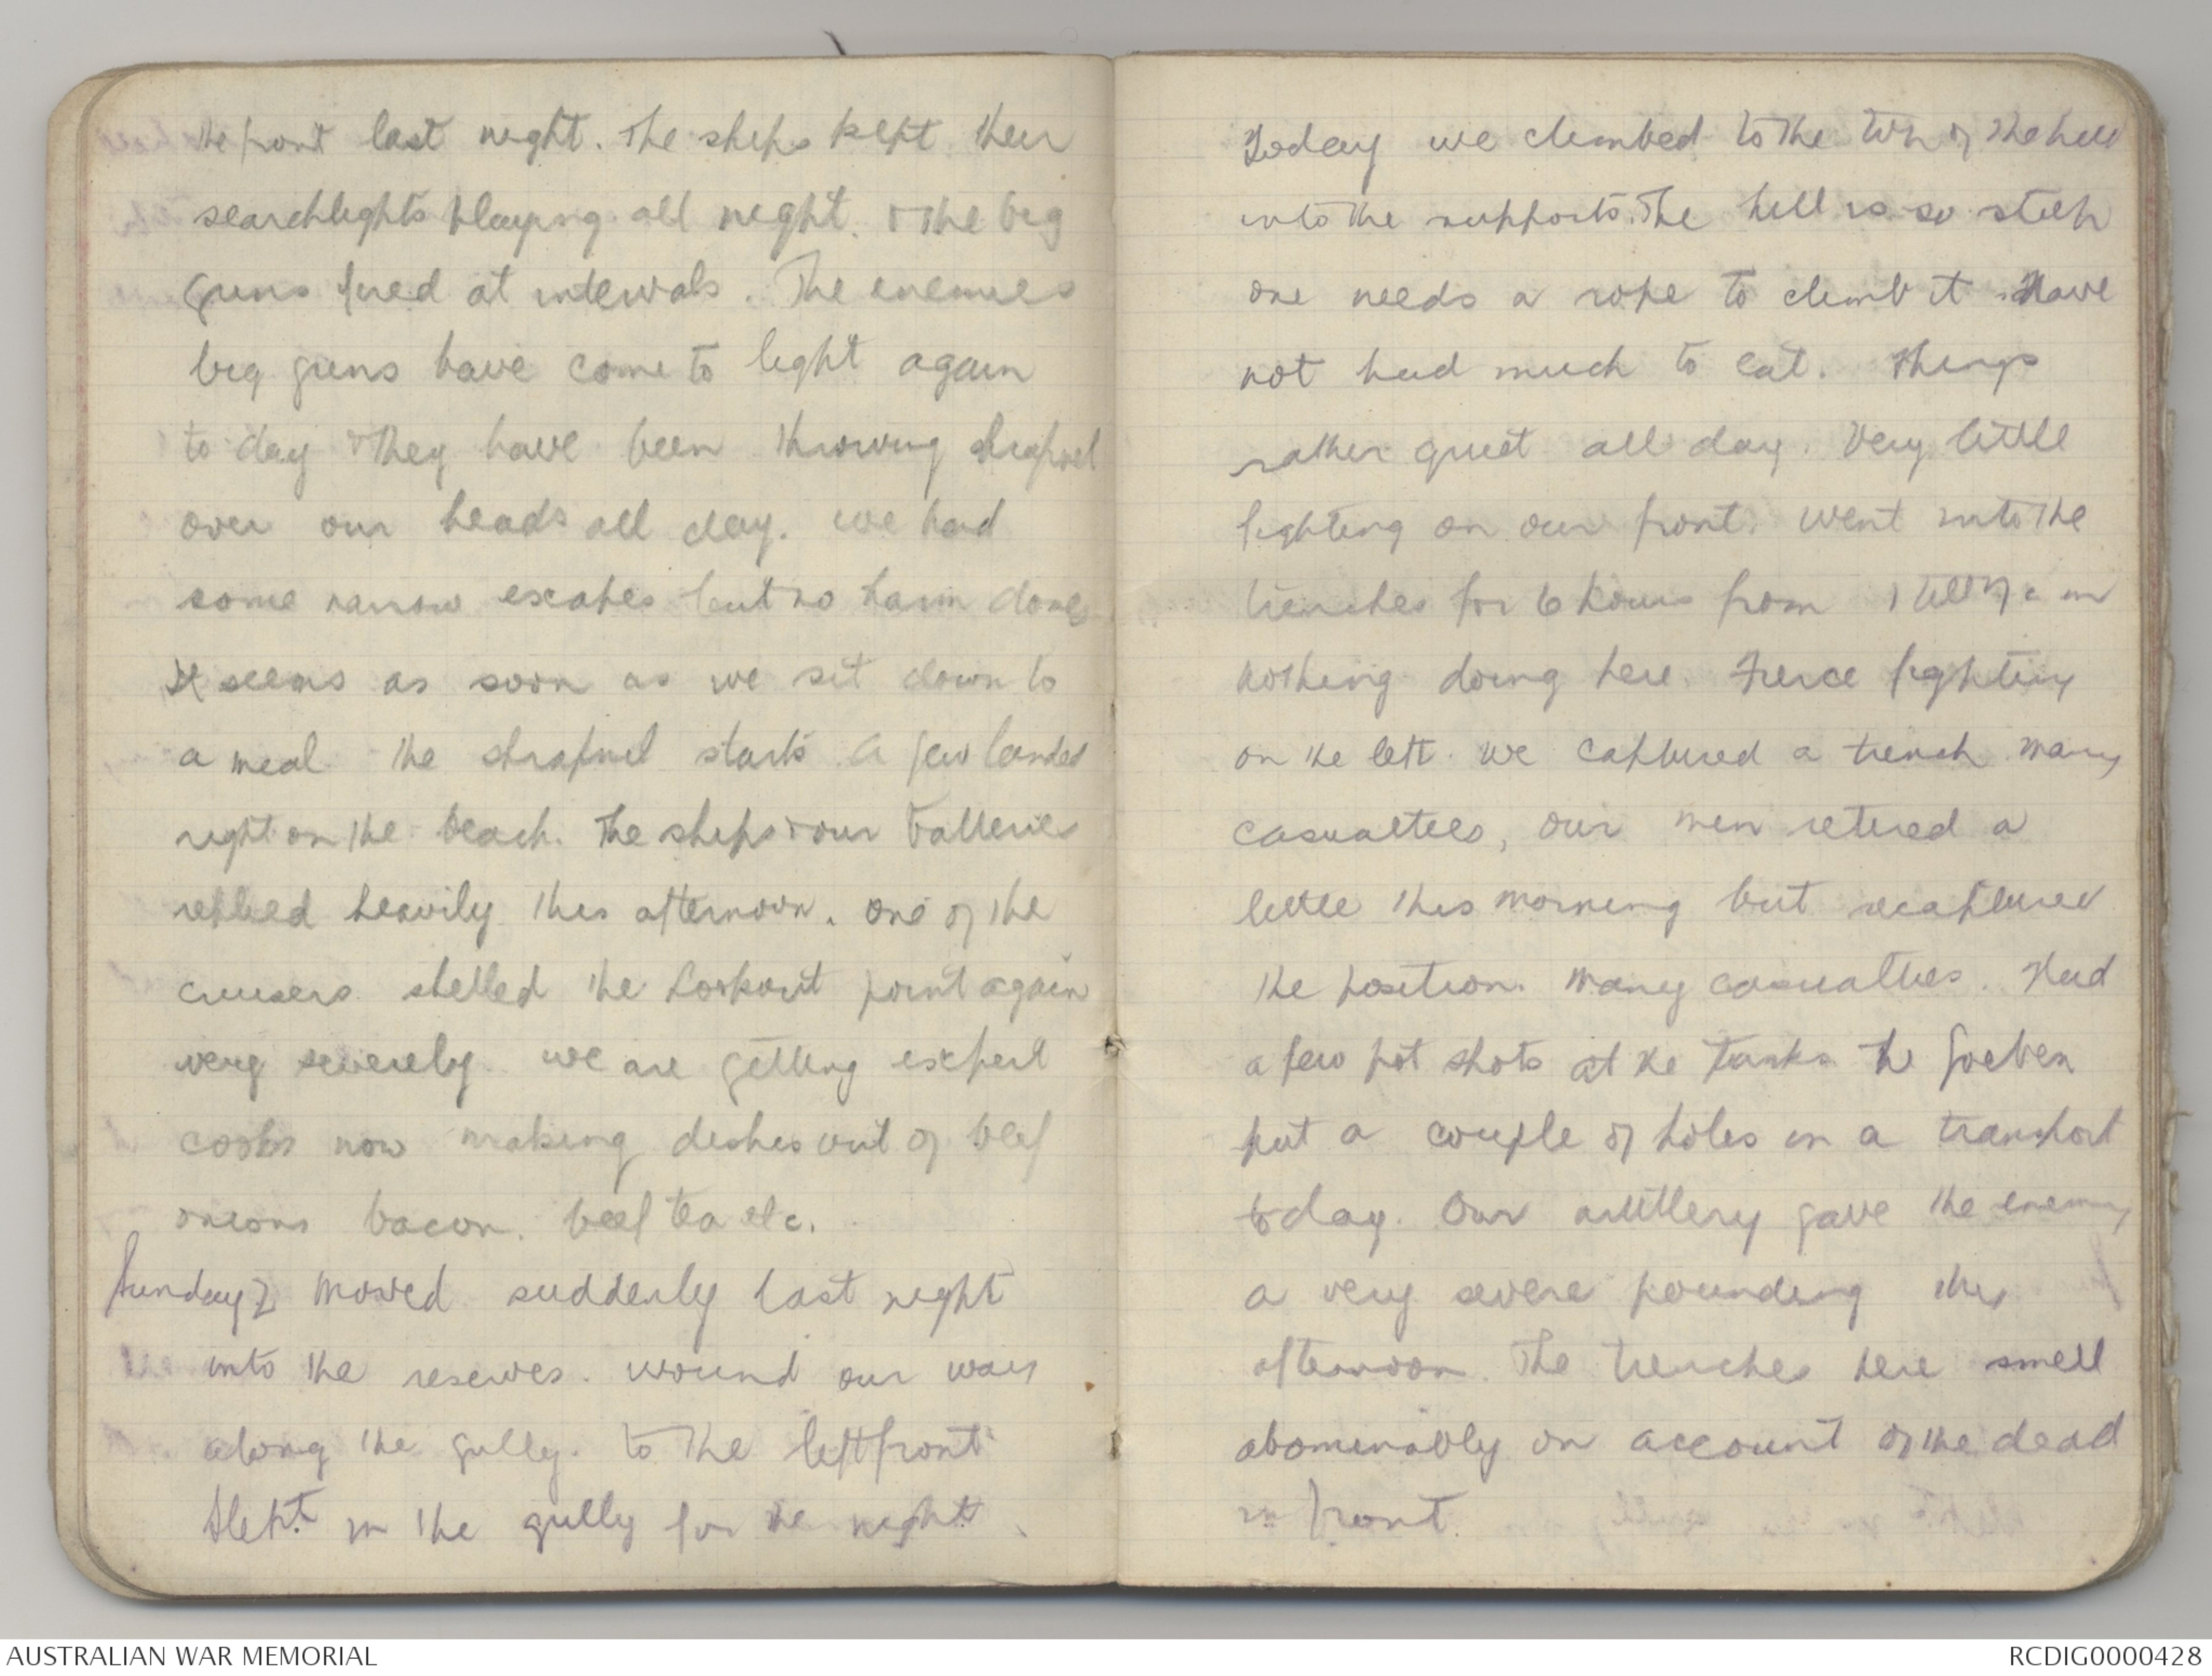 the front last night. The ships kept their
searchlights playing all night. & the big
Guns fired at intervals. The enemies
big guns have come to light again
to day & they have been throwing shrapnel
over our heads all day. we had
some narrow escapes but no harm done
It seems as soon as we sit down to
a meal the shrapnel starts a few landed
right on the beach. The ships & our batteries
replied heavily this afternoon. one of the
cruisers shelled the Lookout point again
very severely. we are getting expert
cooks now making dishes out of beef
onions bacon. beef tea etc.
Sunday 2 moved suddenly last night
into the reserves. wound our way
along the gully. to the left front
Slept in the gully for the night.
Today we climbed to the top of the hill
into the supports. The hill is so steep
one needs a rope to climb it. Have
not had much to eat. Things
rather quiet all day. Very little
fighting on our front. Went into the
trenches for 6 hours from 1 till 7 a m
nothing doing here. Fierce fighting
on the left. We captured a trench many
casualties, our men retired a
little this morning but recaptured
the position. Many casualties. Had
a few pot shots at the Turks. The Goeben
put a couple of holes in a transport
today. Our artillery gave the enemy
a very severe pounding this
afternoon. The trenches here smell
abominably on account of the dead
in front.
AUSTRALIAN WAR MEMORIAL
RCDIG0000428